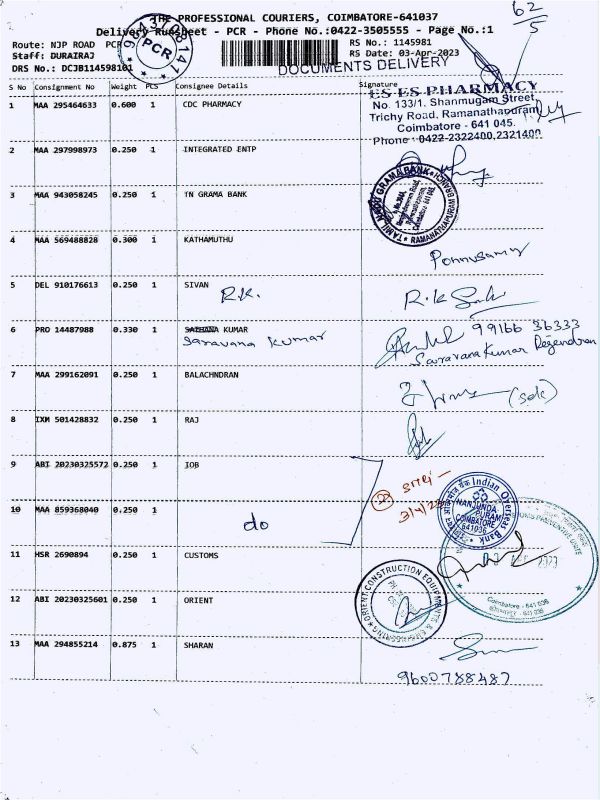 THE PROFESSIONAL COURIERS, COIMBATORE-641037
Delivery Runsheet - PCR - Phone No.:0422-3505555 - Page No.:1
Route: NJP ROAD PCR
RS No.: 1145981
Staff: DURAIRAJ
RS Date: 03-Apr-2023
DRS No.: DCJB114598101
DOCUMENTS DELIVERY
62/5
PCR
S No Consignment No Weight PCS Consignee Details Signature
1 MAA 295464633 0.600 1 CDC PHARMACY
ES ES PHARMACY
No. 133/1. Shanmugam Street
Trichy Road, Ramanathapuram,
Coimbatore - 641 045.
Phone : 0422-2322400,2321400
2 MAA 297998973 0.250 1 INTEGRATED ENTP
3 MAA 943058245 0.250 1 TN GRAMA BANK
TAMIL NADU GRAMA BANK
RAMANATHAPURAM BRANCH
4 MAA 569488828 0.300 1 KATHAMUTHU
Ponnusamy
5 DEL 910176613 0.250 1 SIVAN
R.K.
R.K
6 PRO 14487988 0.330 1 SADHANA KUMAR
Saravana Kumar
99166 36333
Saravana Kumar Rajendran
7 MAA 299162091 0.250 1 BALACHNDRAN
8 IXM 501428832 0.250 1 RAJ
9 ABI 20230325572 0.250 1 IOB
10 MAA 859368040 0.250 1
do
2
3/4/23
Indian Overseas Bank
NANJUNDA-
PURAM
COIMBATORE
641036
11 HSR 2690894 0.250 1 CUSTOMS
Coimbatore - 641 036
12 ABI 20230325601 0.250 1 ORIENT
ORIENT CONSTRUCTION EQUIPMENTS & ENGINEERING
13 MAA 294855214 0.875 1 SHARAN
9600788487